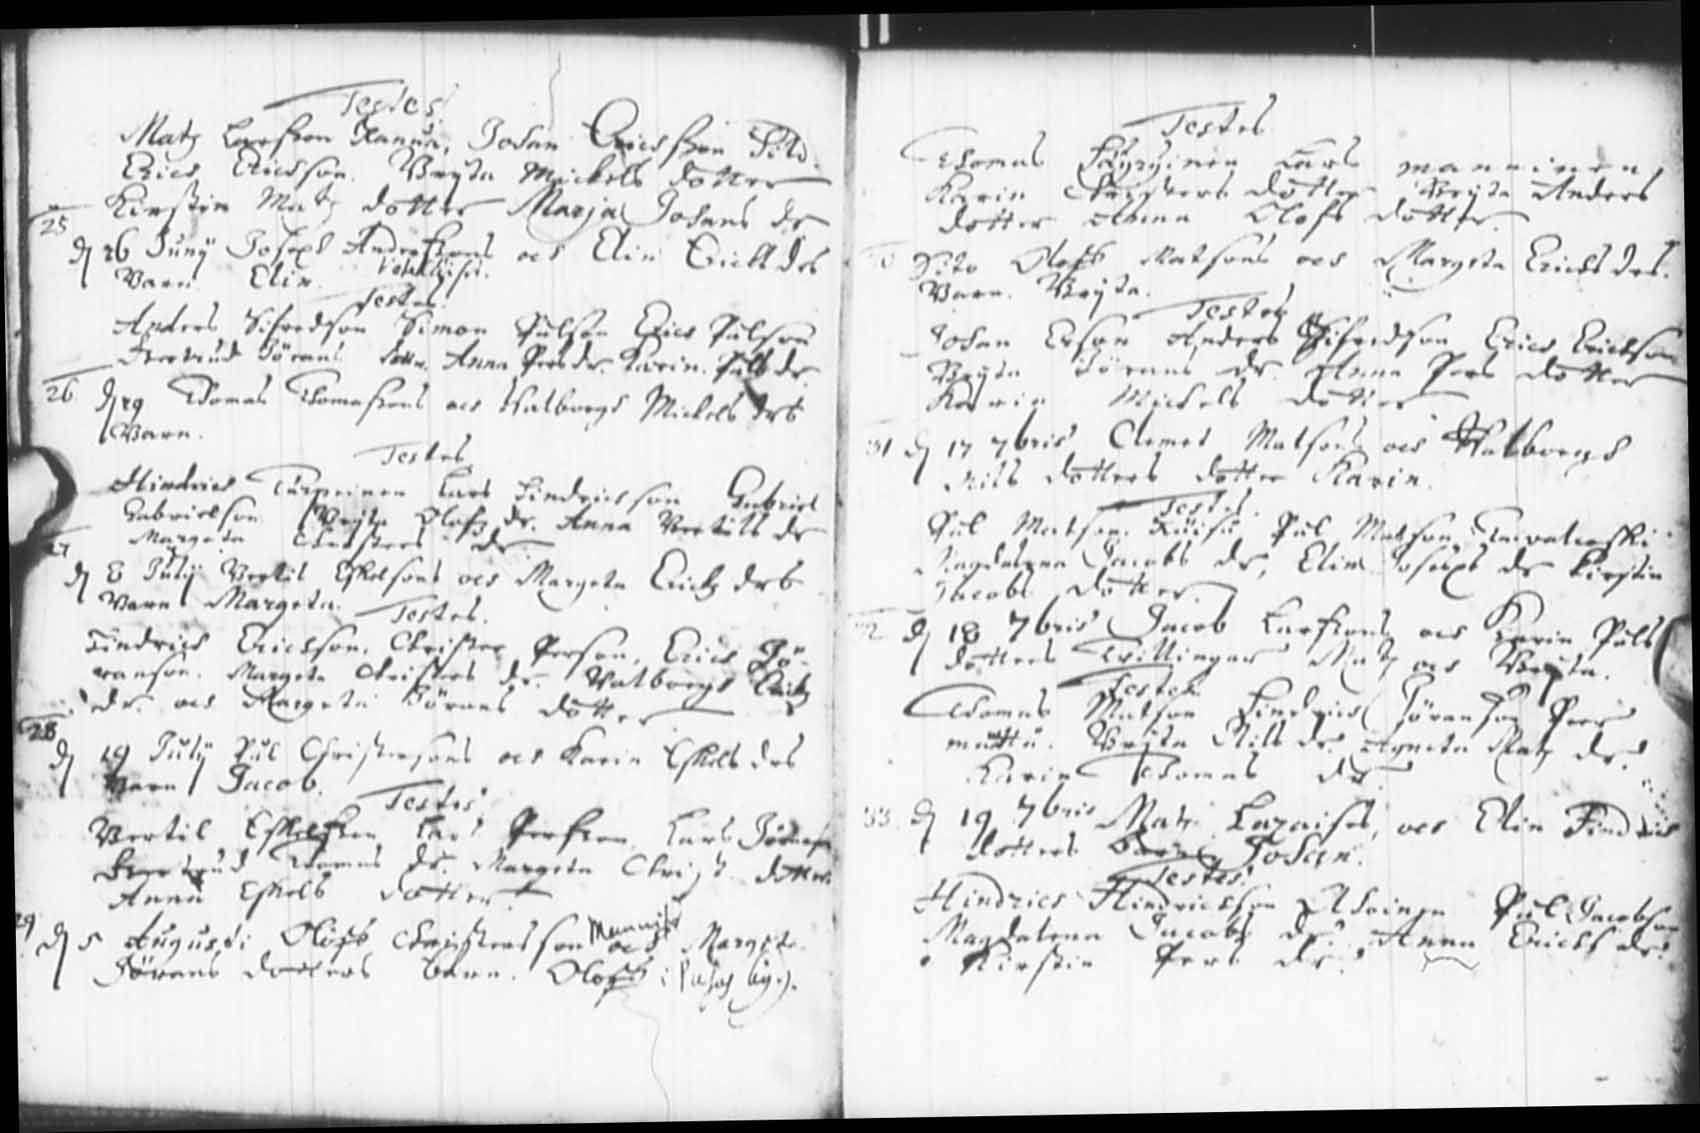 Testes
Matz Larsson Kanua, Johan Ericksson
Erics Ericsson. Brijta Mickels dotter
Kirstin Matz dotter Marja Johans dr
25
d 26 Junÿ Joseph Andersons och Elin Ericks drs
Barn Elin.
Testes
Anders Sifredson Simon Pulson Erics Pulson
Gertrud Jörans dotter Anna Pers dr. Karin Puls dr
26 d 29 Thomas Thomassons och Walborgs Mickels drs
Barn.
Testes
Hindrics Lars Hindricsson Gabriel
Gabrielson Brijta Olofz dr. Anna Bertills dr
Margeta Christers dr
27
d 8 Julÿ Bertil Eskelsons och Margeta Erickz drs
Barn Margeta.
Testes.
Hindrich Ericsson. Christer Person, Erics Jö-
ranson. Margeta Christers dr. Walborgs Erickz
dr. och Margeta Jörans dotter
28
d 19 Julÿ Pul Christersons och Karin Eskels drs
Barn Jacob.
Testes
Bertil Eskelsson Lars Persson Lars
Gertrud Thomas dr. Margeta Christ. dotter.
Anna Eskels dotter
29 d 5 Augusti Oloff Christersson Munnish och Margeta
Jörans dotters barn. Oloff
Testes
Thomas Lars manninen
Karin Christers dotter Brijta Anders
dotter Anna Olofs dotter.
Dito Oloff Matsons och Margeta Ericks drs.
Barn. Brijta.
Testes
Johan Erson Anders Sifredson Erics Erickson
Brijta Jörans dr. Anna Pers dotter
Karin Mickels dotter
31 d 17 7bris Clemet Matsons och Walborgs
Nils dotters dotter Karin.
Testes.
Pul Matson. Pul Matson
Magdalena Jacobs dr, Elin Josephs dr Kirstin
Jacobs dotter
32 d 18 7bris Jacob Larssons och Karin Puls
dotters Twillingar Matz och Brijta.
Testes
Thomas Matson Hindrics Joranson Peer
muttu. Brijta Nils dr. Agneta Matz dr.
Karin Thomas dr
33 d 19 7bris Matz och Elin Hindrics
dotters barn Johan.
Testes
Hindrics Hindricsson Pul Jacobson
Magdalena Jacobz dr. Anna Ericks dr.
Kirstin Pers dr.